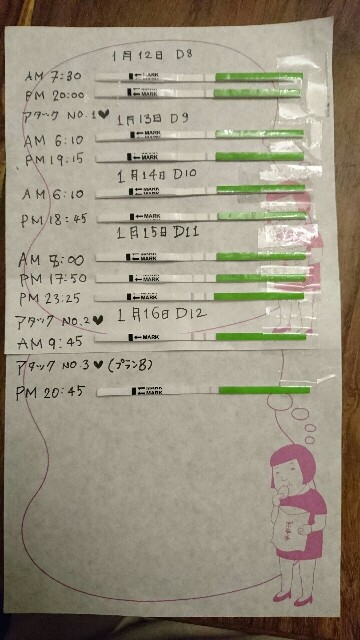 1月12日 D8
AM 7:30 ←MARK
PM 20:00 ←MARK
アタック NO.1♥ 1月13日 D9
AM 6:10 ←MARK
PM 19:15 ←MARK
1月14日 D10
AM 6:10 ←MARK
PM 18:45 ←MARK
1月15日 D11
AM 8:00 ←MARK
PM 17:50 ←MARK
PM 23:25 ←MARK
アタック NO.2♥ 1月16日 D12
AM 9:45 ←MARK
アタック NO.3♥(プランB)
PM 20:45 ←MARK